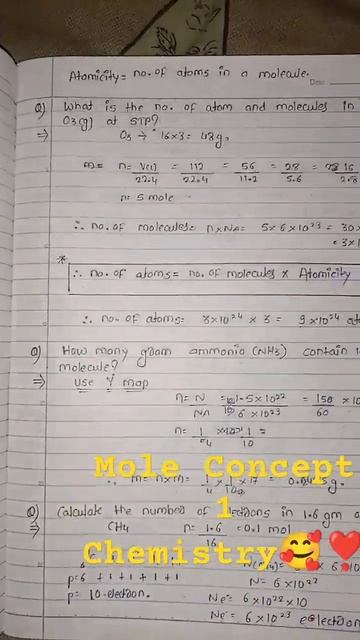 Atomicity = no. of atoms in a molecule.
Q) What is the no. of atom and molecules in
O3(g) at STP?
⇒ O3 → 16×3 = 48g.
n = V(l)/22.4 = 112/22.4 = 56/11.2 = 28/5.6
n = 5 mole
∴ no. of molecules = n×NA = 5×6×10^23 = 30×
= 3×1
* ∴ no. of atoms = no. of molecules × Atomicity
∴ no. of atoms = 3×10^24 × 3 = 9×10^24 at
Q) How many gram ammonia (NH3) contain 1
molecule?
⇒ Use Y map
n = N/NA = 1.5×10^22/6×10^23 = 150/60 × 10
n = 1/4 × 1/10
∴ m = n×m = 1/4 × 1/10 × 17 =
Mole Concept
1
Chemistry🥰❤️
Q) Calculate the number of electrons in 1.6 gm o
⇒ CH4 n = 1.6/16 = 0.1 mol
6 × 10
p = 6 + 1 + 1 + 1 + 1 N = 6×10^22
p = 10-electron. Ne- = 6×10^22×10
Ne- = 6×10^23 electron